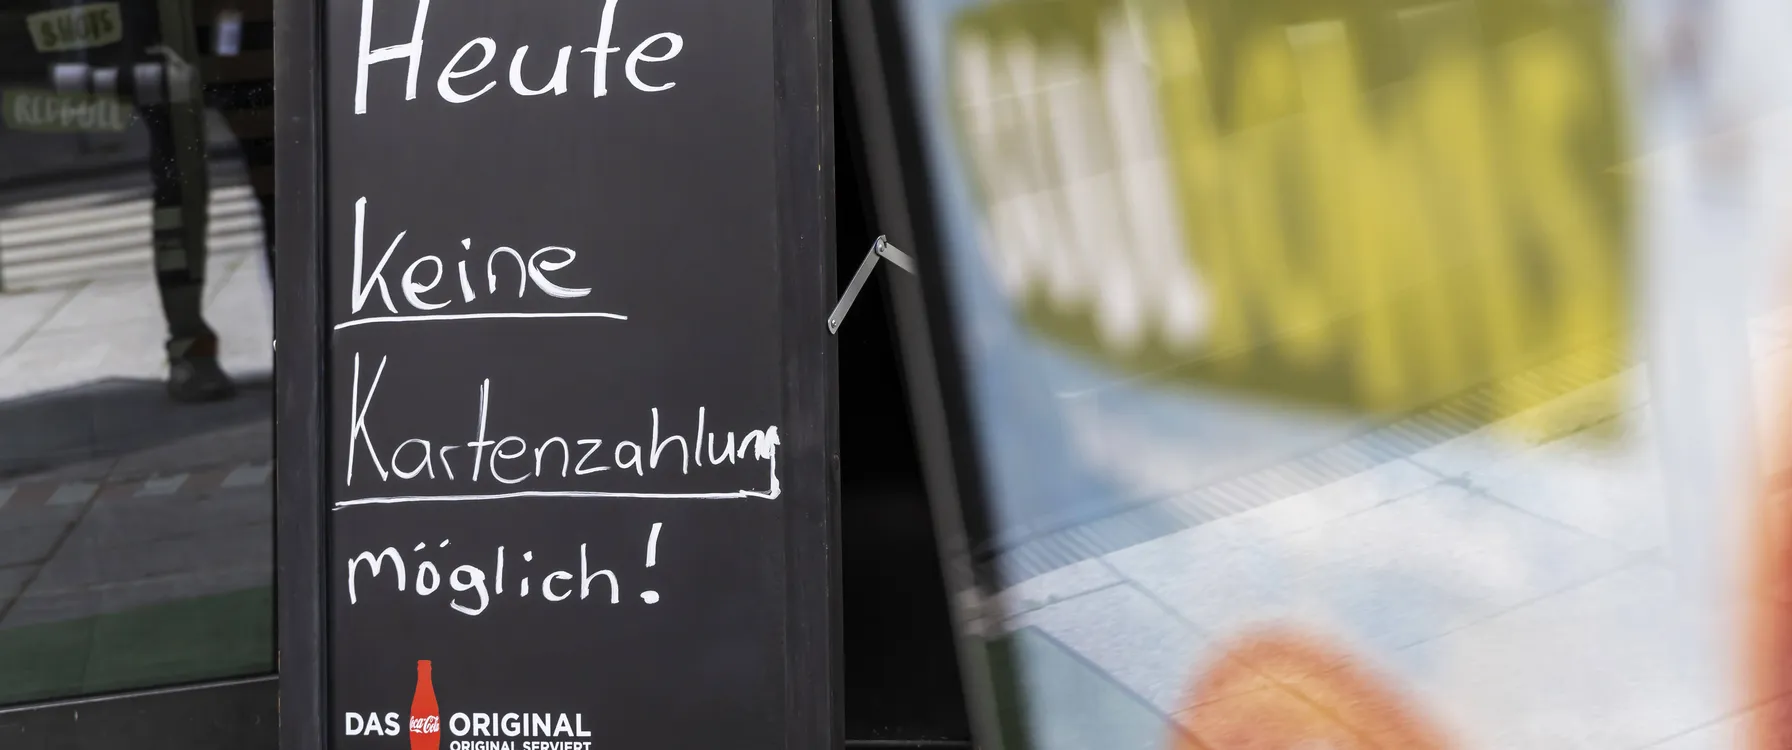 SHOTS
REDBULL
Heute
keine
Kartenzahlung
möglich!
DAS Coca-Cola ORIGINAL
ORIGINAL SERVIERT